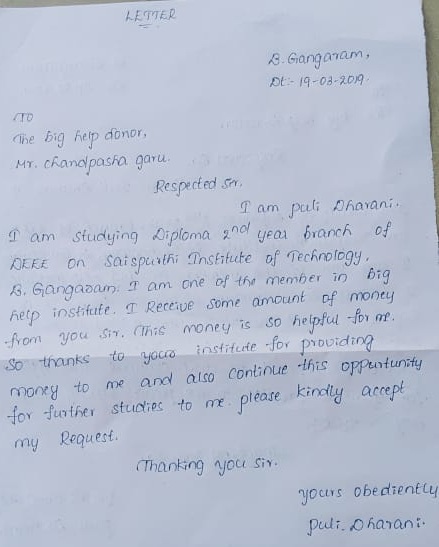 LETTER
B. Gangaram,
Dt:- 19-03-2019.
TO
The big help donor,
Mr. Chandpasha garu.
Respected Sir,
I am puli Dharani.
I am studying Diploma 2nd year branch of
DEEE on Saispurthi Institute of Technology,
B. Gangaram. I am one of the member in big
help institute. I Receive some amount of money
from you sir. This money is so helpful for me.
So thanks to your institute for providing
money to me and also continue this oppurtunity
for further studies to me. please kindly accept
my Request.
Thanking you sir.
yours obediently
puli. Dharani.